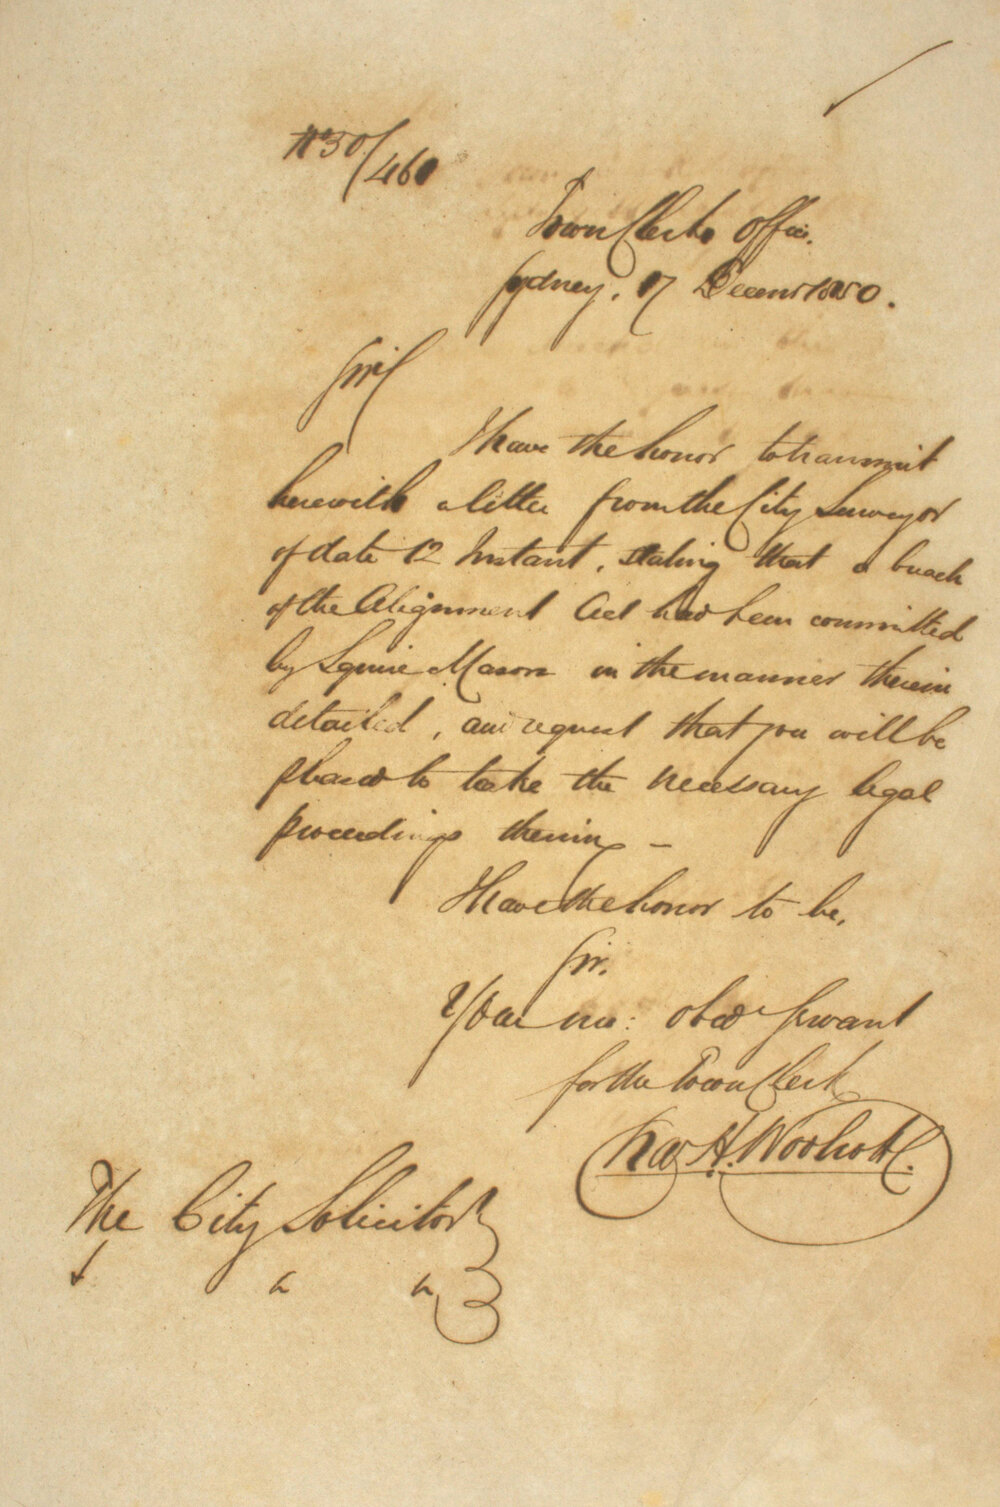 No 50/460
Town Clerks Office.
Sydney, 17 Decemr 1850.
Sir
I have the honor to transmit
herewith a letter from the City Surveyor
of date 12 Instant, stating that a breach
of the Alignment Act had been committed
by Squire Mason in the manner therein
detailed, and request that you will be
pleased to take the necessary legal
proceedings therein –
I have the honor to be,
Sir.
Your mo: obed Servant
for the Town Clerk
H. Woolcott.
The City Solicitor